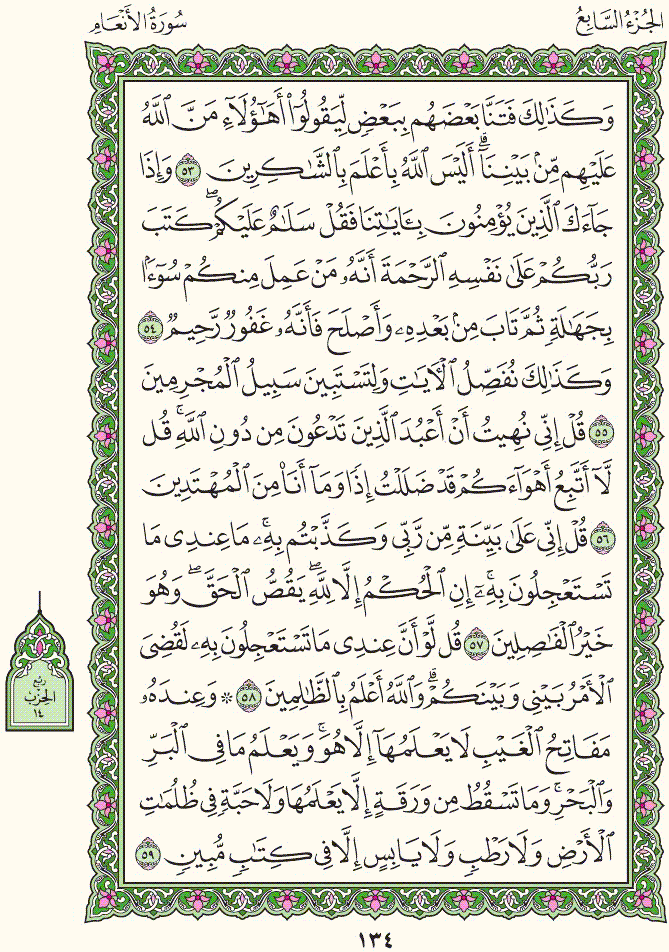 الجزء السابع
سورة الأنعام
وَكَذَٰلِكَ فَتَنَّا بَعْضَهُم بِبَعْضٍ لِّيَقُولُوٓا۟ أَهَٰٓؤُلَآءِ مَنَّ ٱللَّهُ
عَلَيْهِم مِّنۢ بَيْنِنَآ ۗ أَلَيْسَ ٱللَّهُ بِأَعْلَمَ بِٱلشَّٰكِرِينَ ٥٣ وَإِذَا
جَآءَكَ ٱلَّذِينَ يُؤْمِنُونَ بِـَٔايَٰتِنَا فَقُلْ سَلَٰمٌ عَلَيْكُمْ ۖ كَتَبَ
رَبُّكُمْ عَلَىٰ نَفْسِهِ ٱلرَّحْمَةَ أَنَّهُۥ مَنْ عَمِلَ مِنكُمْ سُوٓءًۢا
بِجَهَٰلَةٍ ثُمَّ تَابَ مِنۢ بَعْدِهِۦ وَأَصْلَحَ فَأَنَّهُۥ غَفُورٌ رَّحِيمٌ ٥٤
وَكَذَٰلِكَ نُفَصِّلُ ٱلْـَٔايَٰتِ وَلِتَسْتَبِينَ سَبِيلُ ٱلْمُجْرِمِينَ
٥٥ قُلْ إِنِّى نُهِيتُ أَنْ أَعْبُدَ ٱلَّذِينَ تَدْعُونَ مِن دُونِ ٱللَّهِ ۚ قُل
لَّآ أَتَّبِعُ أَهْوَآءَكُمْ ۙ قَدْ ضَلَلْتُ إِذًا وَمَآ أَنَا۠ مِنَ ٱلْمُهْتَدِينَ
٥٦ قُلْ إِنِّى عَلَىٰ بَيِّنَةٍ مِّن رَّبِّى وَكَذَّبْتُم بِهِۦ ۚ مَا عِندِى مَا
تَسْتَعْجِلُونَ بِهِۦٓ ۚ إِنِ ٱلْحُكْمُ إِلَّا لِلَّهِ ۖ يَقُصُّ ٱلْحَقَّ ۖ وَهُوَ
خَيْرُ ٱلْفَٰصِلِينَ ٥٧ قُل لَّوْ أَنَّ عِندِى مَا تَسْتَعْجِلُونَ بِهِۦ لَقُضِىَ
ٱلْأَمْرُ بَيْنِى وَبَيْنَكُمْ ۗ وَٱللَّهُ أَعْلَمُ بِٱلظَّٰلِمِينَ ٥٨ ۞ وَعِندَهُۥ
مَفَاتِحُ ٱلْغَيْبِ لَا يَعْلَمُهَآ إِلَّا هُوَ ۚ وَيَعْلَمُ مَا فِى ٱلْبَرِّ
وَٱلْبَحْرِ ۚ وَمَا تَسْقُطُ مِن وَرَقَةٍ إِلَّا يَعْلَمُهَا وَلَا حَبَّةٍ فِى ظُلُمَٰتِ
ٱلْأَرْضِ وَلَا رَطْبٍ وَلَا يَابِسٍ إِلَّا فِى كِتَٰبٍ مُّبِينٍ ٥٩
ربع
الحزب
١٤
١٣٤